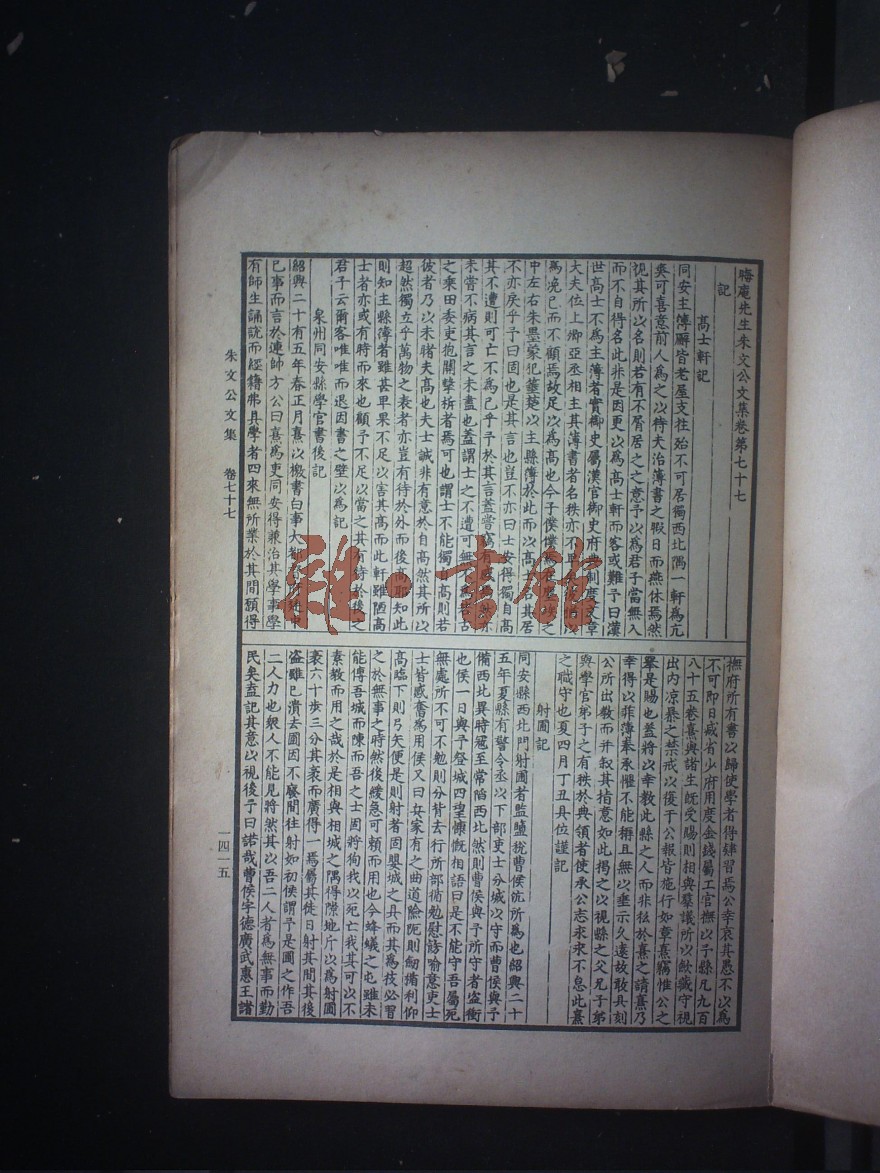 晦庵先生朱文公文集卷第七十七
記
高士軒記
同安主簿廨皆老屋支拄殆不可居獨西北隅一軒為亢
爽可喜意前人為之以待夫治簿書之暇日而燕休焉然
視其所以名則若有不屑居之之意予以為君子當無入
而不自得名此非是因更以為高士軒而客或難予曰漢
世高士不為主簿者實御史屬漢官御史府典制度文章
大夫位上卿亞丞相主其簿書者名秩亦不
為浼已而不顧焉故足以為高也今子僕僕焉在塵埃之
中左右朱墨蒙犯箠楚以主縣簿於此而以高士名其居
不亦戾乎予曰固也是其言也豈不亦曰士安得獨自高
其不遭則可亡不為已乎予於其言蓋嘗
未嘗不病其言之未盡也蓋謂士之不遭可無不為若古
之乘田委吏抱關擊柝者焉可也謂士不能獨自高則若
彼者乃以未睹夫高也夫士誠非有意於自高然其所以
超然獨立乎萬物之表者亦豈有待於外而後高耶知此
則知主縣簿者雖甚卑果不足以害其高而此軒雖陋高
士者亦或有時而來也顧予不足以當之其有待於後之
君子云爾客唯唯而退因書之壁以為記
泉州同安縣學官書後記
紹興二十有五年春正月熹以檄書白事大都督府
已事而言於連帥方公曰熹為吏同安得兼治其學事學
有師生誦說而經籍弗具學者四來無所業於其間願得
撫府所有書以歸使學者得肄習焉公幸哀其愚不以為
不可即日減省少府用度金錢屬工官撫以予縣凡九百
八十五卷熹與諸生既受賜則相與羣議所以斂藏守視
出內涼暴之禁戒以復于公報皆施行如章熹竊惟公之
舉是賜也蓋將以幸教此縣之人而非私於熹之請熹乃
幸得以菲薄奉承懼不能稱且無以垂示久遠故敢具刻
公所出教而并敘其指意如此揭之以視縣之父兄子弟
與學官弟子之有秩於典領者使承公志求求不怠此熹
之職守也夏四月丁丑具位謹記
射圃記
同安縣西北門射圃者監鹽稅曹侯沆所為也紹興二十
五年夏縣有警令丞以下部吏士分城以守而曹侯與予
備西北異時冦至常陷西北然則曹侯與予所守者盜衝
也侯一日與予登城四望慷慨相語曰是不能守吾屬死
無處所不可不勉則分背去行所部循勉慰諭喻意吏士
士皆感奮為用侯又曰兵家有之曲道險阨則劒楯利仰
高臨下則弓矢便是則射者固嬰城之具而其為技必習
之於無事之時然後緩急可頼而用也今蜂蟻之屯雖未
能傳吾城而陳而吾之士固將狥我以死亡我其可以不
素教而用之哉於是相與相城之隅得隙地斤以為射圃
袤六十步三分其袤而廣得一焉屬其徒日射其間其後
盜雖已潰去圃因不廢間往射如初侯謂予是圃之作吾
二人力也與人不能見將然其以吾二人者為無事而勤
民矣盍記其意以視後子曰諾哉曹侯字德廣武惠王諸
朱文公文集 卷七十七
一四一五
雜·書館